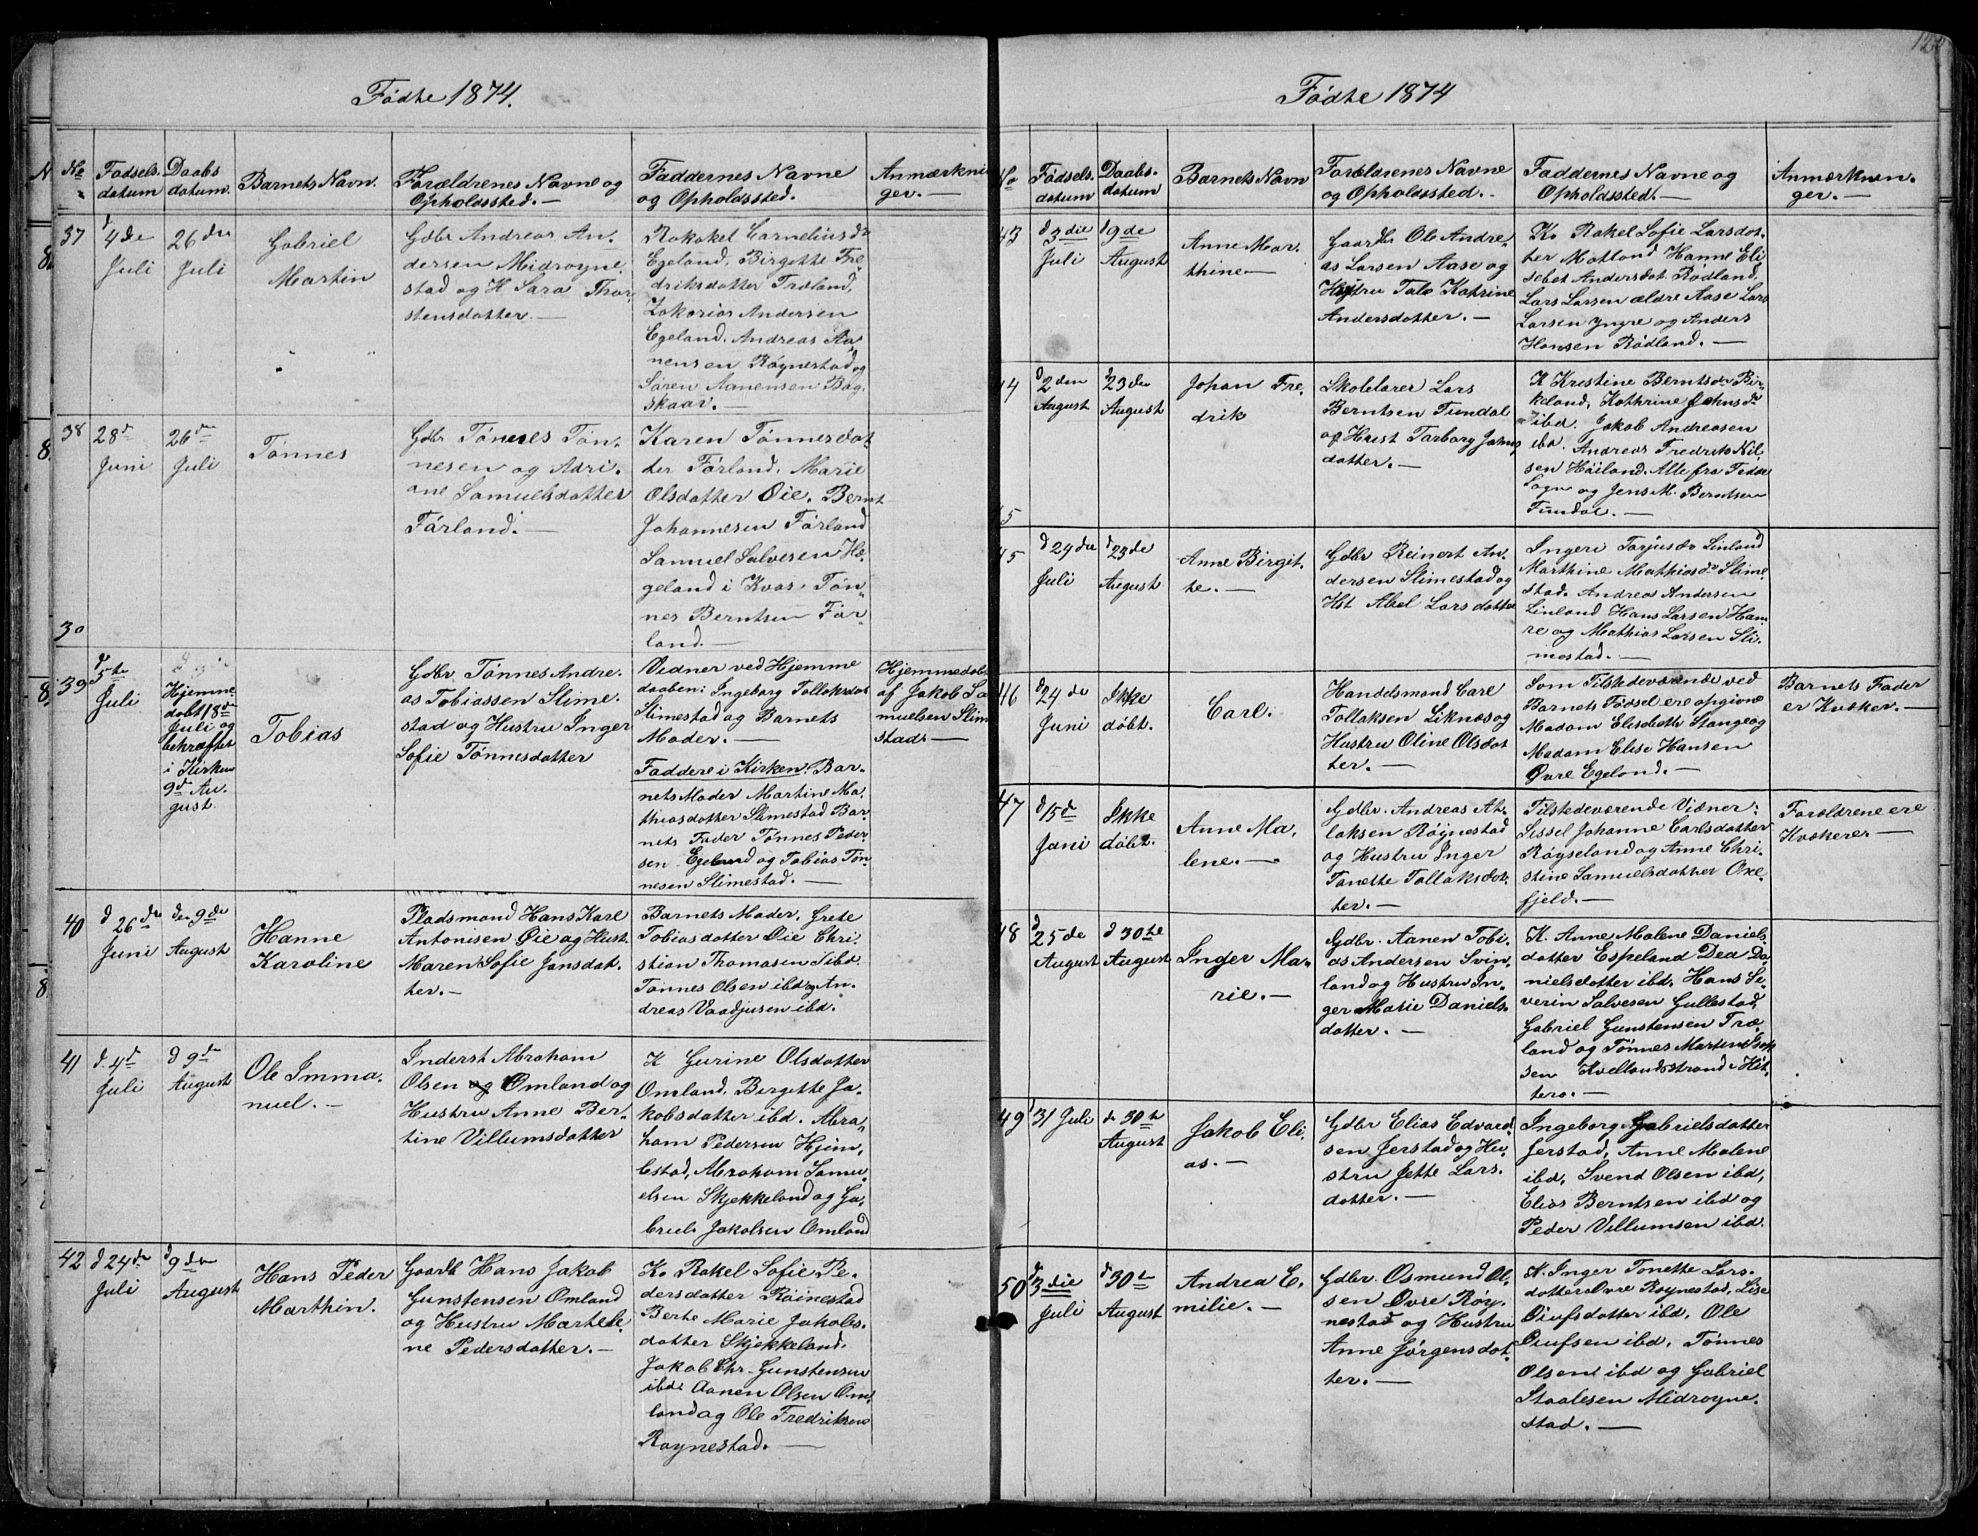 Fødte 1874.
No
Fødsels.
datum
Daabs
datum.
Barnets Navn.
Forældrenes Navne og
Opholdssted. —
Faddernes Navne
og Opholdssted.
Anmærknin
ger. —
37
4de
Juli
26de
Juli
Gabriel
Martin
Gdbr Andreas An-
dersen Midrøyne
stad og H Sara Thor
stensdatter. —
Egeland, Birgitte Fre-
driksdatter Træland,
Zakarias Andersen
Egeland, Andreas Aa-
nensen Røynestad og
Søren Aanensen Bog-
skaar. —
38
28de
Juni
26de
Juli
Tønnes
Gdbr Tønnes Tøn-
nesen og Adri-
ane Samuelsdatter
Førland. —
Karen Tønnesdat
der Førland, Marie
Olsdatter Øie, Bernt
Johannesen Førland
Samuel Salvesen Hæ-
geland i Kvas, Tøn-
nes Berntsen Før-
land. —
39
5te
Juli
Hjemme
døbt 18de
Juli og
bekræftet
i Kirken
9d Au-
gust.
Tobias
Gdbr. Tønnes Andre-
as Tobiassen Slime-
stad og Hustru Inger
Sofie Tønnesdatter
Vidner ved Hjemme
daaben: Ingeborg Tollaksdat
Slimestad og Barnets
Moder. —
Faddere i Kirken: Bar-
nets Moder Martine Ma-
thiasdatter Slimestad Bar
nets Fader Tønnes Peder-
sen Egeland og Tobias Tøn-
nesen Slimestad. —
Hjemmedøbt
af Jakob Sa
muelsen Slim
stad —
40
d 26de
Juni
den 9de
August
Hanne
Karoline
Pladsmand Hans Karl
Antonisen Øie og Hust.
Maren Sofie Jansdat-
ter. —
Barnets Moder, Grete
Tobiasdatter Øie Chri-
stian Thomasen ibd.
Tønnes Olsen ibd og An-
dreas Vaadjusen ibd.
41
d. 4d
Juli
d 9de
August
Ole Imma-
nuel. —
Inderst Abraham
Olsen og Omland og
Hustru Anne Ber-
tine Villumsdatter
K Gurine Olsdatter
Omland, Birgitte Ja-
kobsdatter ibd. Abra-
ham Pedersen Hjem-
bestad, Abraham Samu-
elsen Skjekkeland og Ga-
briel Jakobsen Omland
42
d 24de
Juli
d 9de
August
Hans Peder
Marthin.
Gaardb Hans Jakob
Gunstensen Omland
og Hustru Marthe
ne Pedersdatter. —
K. Rakel Sofie Pe-
dersdatter Røinestad
Berte Marie Jakobs-
datter Skjekkeland.
Jakob Chr. Gunstensen
ibd. Aanen Olsen Om-
land og Ole Fredriksen
Røynestad. —
Fødte 1874
No
Fødsels.
datum
Daabs-
datum
Barnets Navn
Forældrenes Navne
og Opholdssted. —
Faddernes Navne og
Opholdssted. —
Anmærknin-
ger. —
43
d 3die
Juli
d 9de
August
Anne Mar-
thine —
Gaardbr Ole Andre-
as Larsen Aase og
Hustru Tale Katrine
Andersdatter. —
K. Rakel Sofie Larsdat-
ter Motland Hanne Eli
sebet Andersdat Rødland,
Lars Larsen ældre Aase Lars
Larsen Yngre og Anders
Hansen Rødland. —
44
d 2den
August
d 23de
August
Johan Fre-
drik
Skolelærer Lars
Berntsen Tundal
og Hust Tarborg Jahns
datter. —
K Kristine Berntsdr Bir-
keland, Kathrine Jahnsdr
ibd. Jakob Andreasen
ibd. Andreas Fredrik Nil-
sen Høiland. Alle fra Fedde
Sogn og Jens M. Berntsen
Tundal. —
45
d 24de
Juli
d 23de
August
Anne Birgit-
te. —
Gdbr Reinert An-
dersen Slimestad og
Hst Abel Larsdatter
Ingeri Torjusdr Linland
Marthine Mathiasdr Slime-
stad. Andrea Andersen
Linland Hans Larsen Ham-
re og Mathias Larsen Sli-
mestad. —
46
d 24de
Juni
Ikke
døbt.
Carl.
Handelsmand Carl
Tollaksen Liknæs og
Hustru Oline Olsdat
ter. —
Som Tilstedeværende ved
Barnets Fødsel ere opgivne
Madam Elisabeth Stange og
Madam Elise Hansen
Øvre Egeland. —
Barnets Fader
er Kvæker. —
47
d 15d
Juni
Ikke
døbt.
Anne Ma-
lene. —
Gdbr. Andreas At-
laksen Røynestad
og Hustru Inger
Tonette Tollaksdat-
ter. —
Tilstedeværende Vidner:
Sissel Johanne Carlsdatter
Røyseland og Anne Chri-
stine Samuelsdatter Oxe-
fjeld. —
Forældrene ere
Kvækerer —
48
d 25de
August
d 30te
August
Inger Ma-
rie. —
Gdbr. Aanen Tobi-
as Andersen Svin-
land og Hustru In-
ger Marie Daniels-
datter. —
K. Anne Malene Daniels
datter Espeland Dea Da-
nielsdatter ibd. Hans Se-
verin Salvesen Gullestad
Gabriel Gunstensen Træ-
land og Tønnes Martin
sen Kvellandsstrand i Hit-
terø. —
49
31 Juli
d 30te
August
Jakob Eli-
as. —
Gdbr Elias Edvard
sen Jerstad og Hu-
stru Jette Lars-
datter. —
Ingeborg Gabrielsdatter
Jerstad, Anne Malene
ibd, Svend Olsen ibd,
Elias Berntsen ibd og
Peder Villumsen ibd.
50
d 3die
Juli
d 30te
August
Andrea E-
milie. —
Gdbr. Osmund Ol-
sen Øvre Røy-
nestad og Hustru
Anne Jørgensdat-
ter. —
K. Inger Tonette Lars-
datter Øvre Røynestad, Lise
Oiufsdatter ibd. Ole
Oiufsen ibd, Tønnes
Olsen ibd og Gabriel
Staalesen Midrøyne-
stad. —